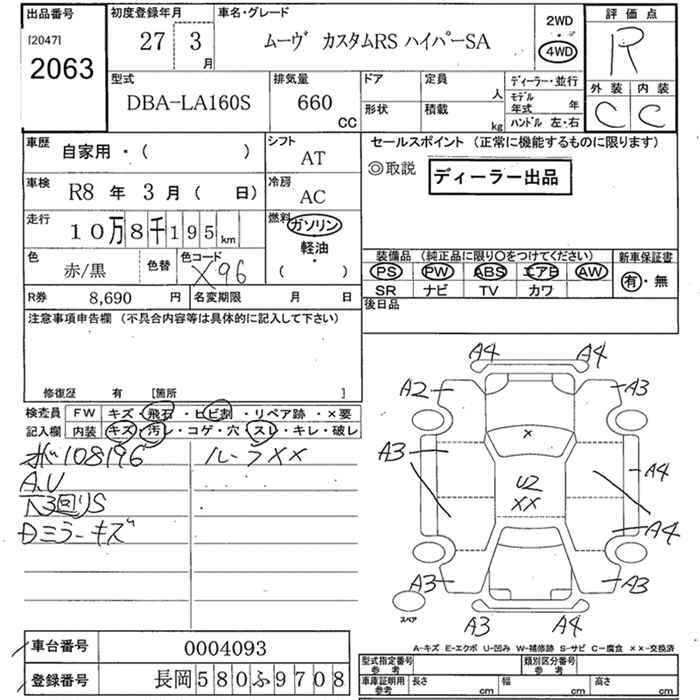 出品番号
[2047]
2063
初度登録年月
27 3
月
車名・グレード
ムーヴ カスタムRS ハイパーSA
2WD
4WD
評価点
R
型式
DBA-LA160S
排気量
660
CC
ドア
定員
人
形状
積載
kg
ディーラー・並行
モデル
年式
年
ハンドル 左・右
外装
内装
C
C
車歴
自家用・( )
シフト
AT
車検
R8 年 3 月 ( 日)
冷房
AC
走行
10万8千195 km
燃料
ガソリン
軽油
・
( )
色
赤/黒
色替
色コード
X96
R券
8,690
円
名変期限
月 日
セールスポイント (正常に機能するものに限ります)
◎取説
ディーラー出品
装備品 (純正品に限り○をつけてください)
新車保証書
PS PW ABS エアB AW
SR ナビ TV カワ
有・無
後日品
注意事項申告欄 (不具合内容等は具体的に記入して下さい)
修復歴 有 [箇所 ]
検査員
記入欄
FW
キズ・飛石・ヒビ割・リペア跡・×要
内装
キズ・汚レ・コゲ・穴・スレ・キレ・破レ
108196
ルーフXX
A,U
下3回りS
Dミラーキズ
A4
A4
A2
A3
A3
×
A4
U2
XX
A4
A3
A3
スペア
A3
A4
A-キズ E-エクボ U-凹み W-補修跡 S-サビ C-腐食 ××-交換済
車台番号
0004093
登録番号
長岡580ふ9708
型式指定番号
参考
類別区分番号
参考
車庫証明用
参考
長さ
cm
幅
cm
高さ
cm